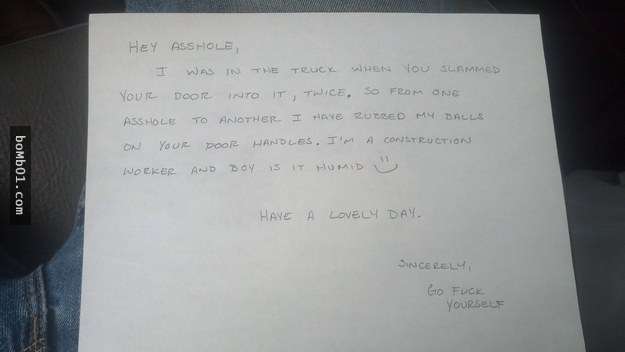 HEY ASSHOLE,
I WAS IN THE TRUCK WHEN YOU SLAMMED
YOUR DOOR INTO IT, TWICE. SO FROM ONE
ASSHOLE TO ANOTHER I HAVE RUBBED MY BALLS
ON YOUR DOOR HANDLES. I'M A CONSTRUCTION
WORKER AND BOY IS IT HUMID
HAVE A LOVELY DAY.
SINCERELY,
GO FUCK
YOURSELF
boMb01.com